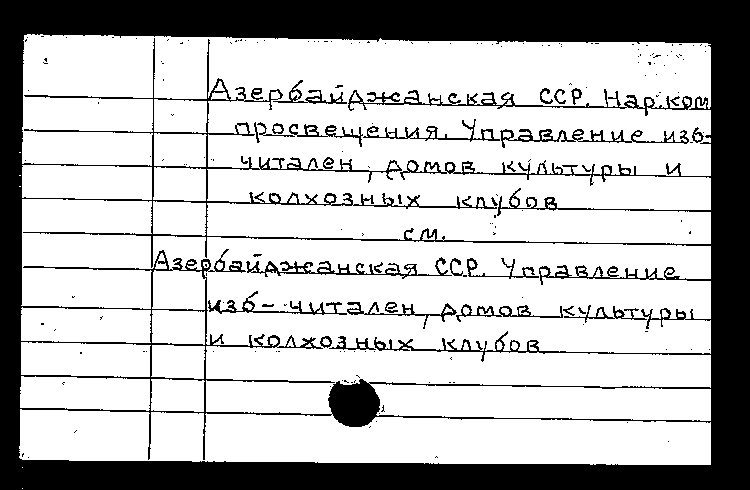 Азербайджанская ССР. Нар.ком.
просвещения. Управление изб-
читален, домов культуры и
колхозных клубов
см.
Азербайджанская ССР. Управление
изб-читален, домов культуры
и колхозных клубов